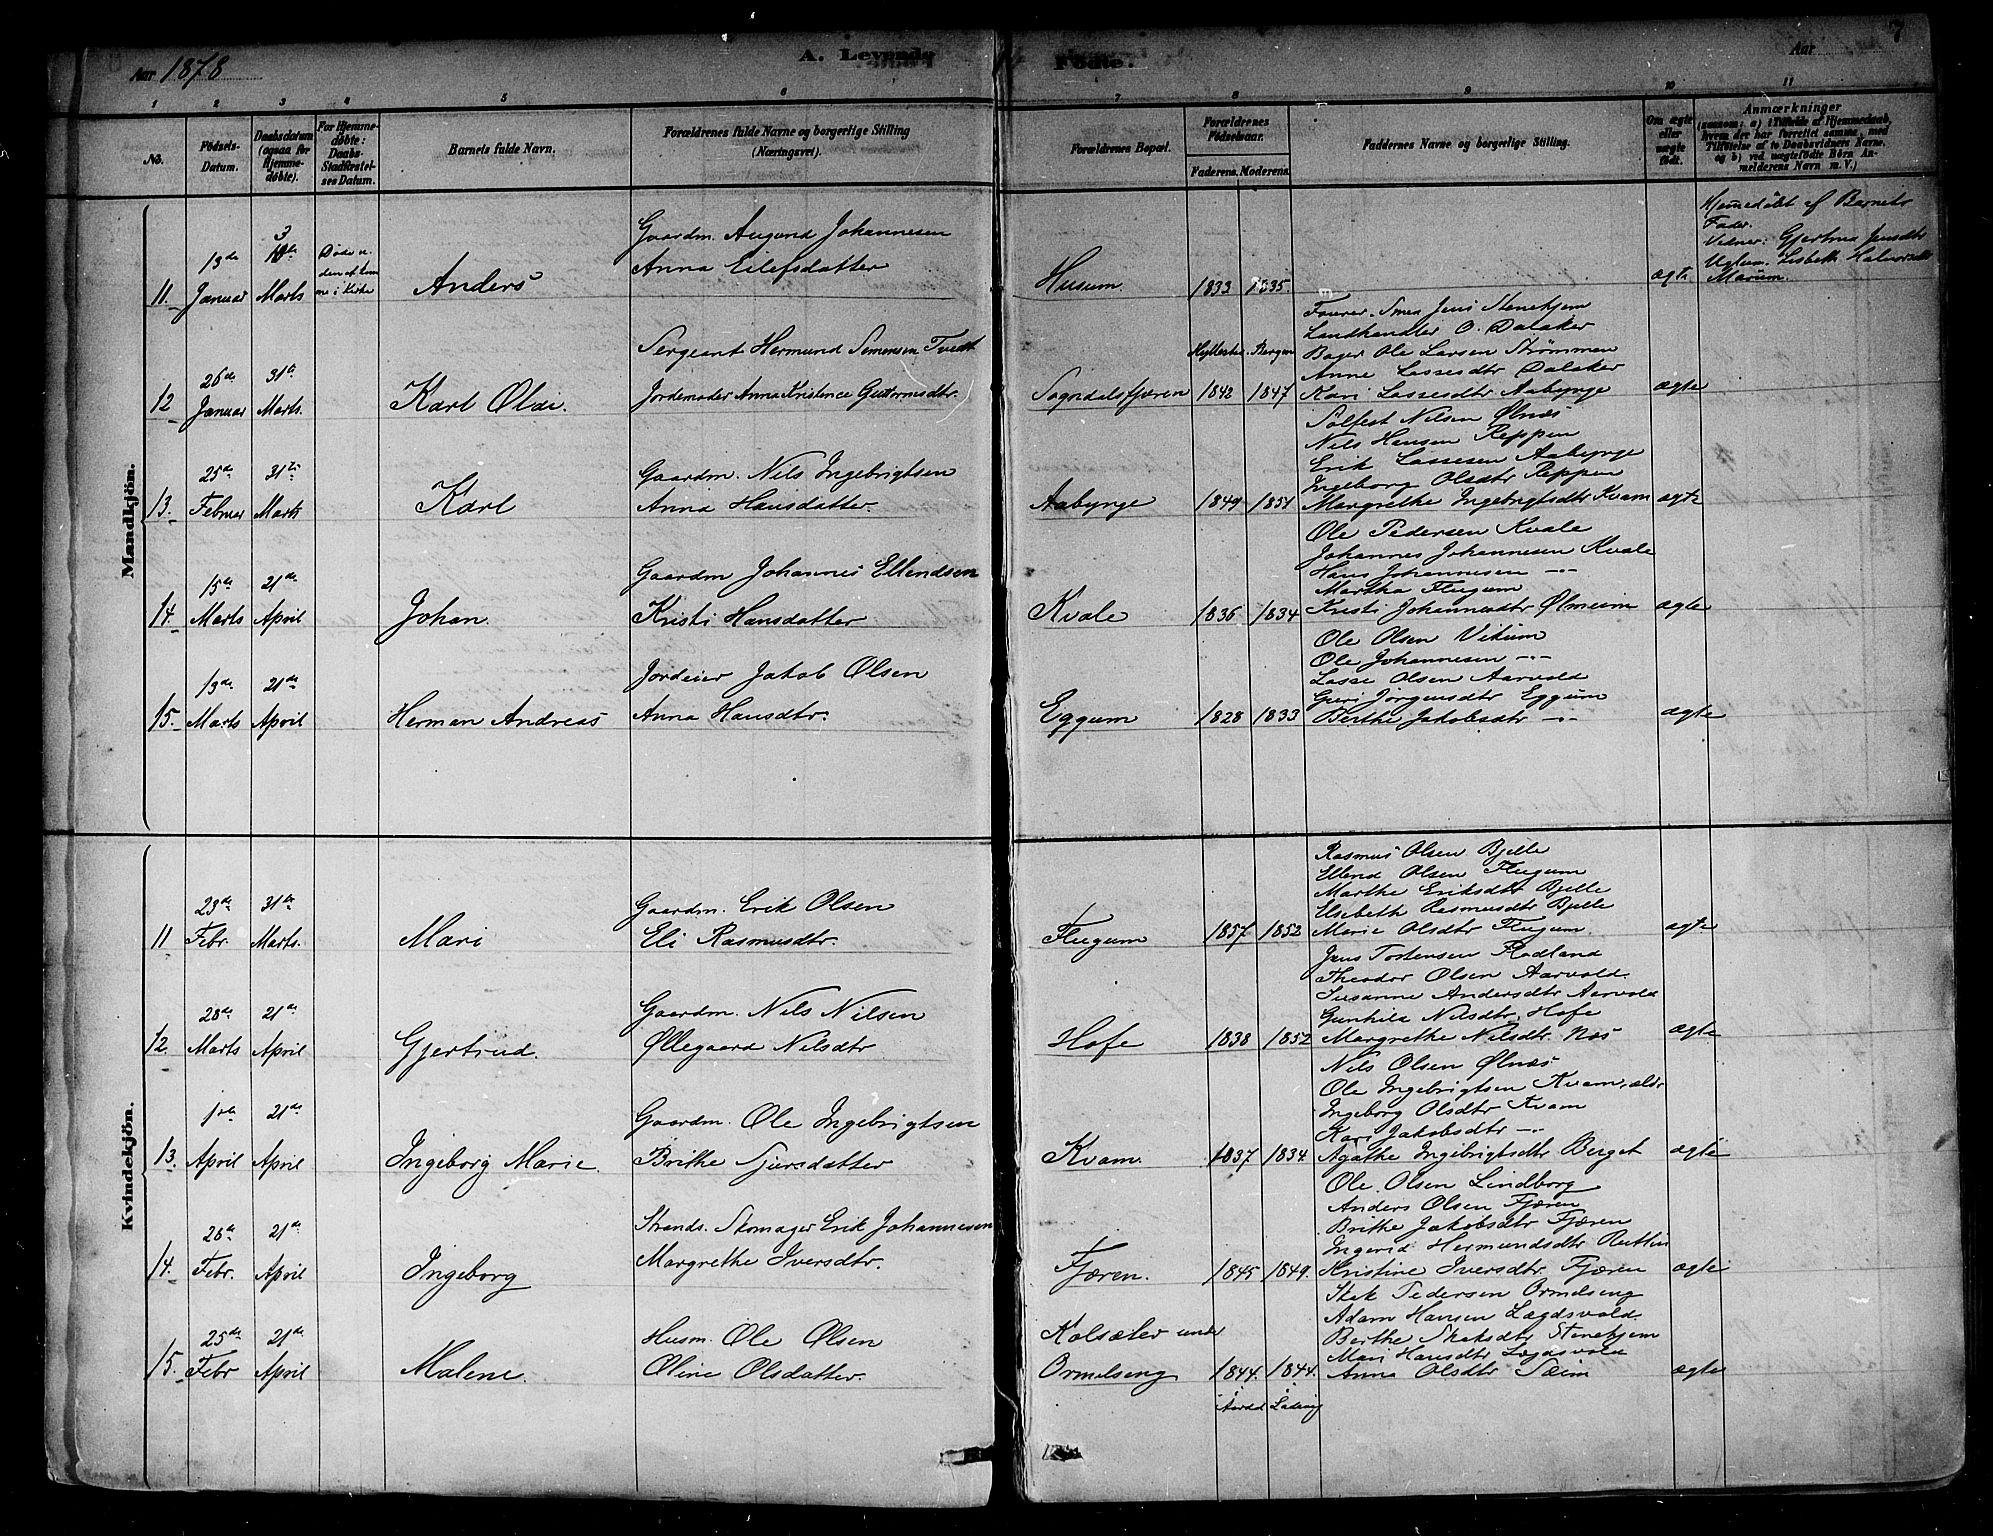 Aar 1878
A. Levende Fødte.
Aar
7
1 2 3 4 5 6 7 8 9 10 11
No.
Fødsels-Datum.
Daabsdatum (ogsaa for Hjemmedøbte).
For Hjemmedøbte: Daabs-Stadfæstelses Datum.
Barnets fulde Navn.
Forældrenes fulde Navne og borgerlige Stilling (Næringsvei).
Forældrenes Bopæl.
Forældrenes Fødselsaar.
Faderens. Moderens.
Faddernes Navne og borgerlige Stilling.
Om ægte eller uægte født.
Anmærkninger
(saasom: a) i Tilfælde af Hjemmedaab, hvem der har forrettet samme, med Tilføielse af to Daabsvidners Navne, og b) ved uægtefødte Børn Anmelderens Navn m. V.)
Mandkjön.
11. 13de Januar
3 Marts
Døde uden at komme i Kirke
Anders
Gaardm. Augund Johannesen
Anna Eilefsdatter
Husum. 1833 1835.
ægte
Hjemedøbt af Barnets
Fader.
Vidner: Gjertrua Jensdtr
Lisbeth
12 26de Januar
31te Marts.
Karl Olai.
Sergeant Hermund Simonsen Tvedt
Jordemoder Anna Kristence Guttormsdtr.
Sogndalsfjæren
Hyllestad. Bergen
1842 1847
Fourer. Smed Jens Stenehjem
Landhandler O. Dalaker
Bager Ole Larsen Strømmen
Anne Lassesdtr Dalaker
Kari Lassesdtr Aabynge
ægte
13. 25de Februar
31te Marts
Karl
Gaardm. Nils Ingebrigtsen
Anna Hansdatter.
Aabynge 1849 1851
Solfest Nilsen Ølnæs
Nils Hansen Reppen
Erik Lassesen Aabynge
Ingeborg Olsdtr Reppen
Margrethe Ingebrigtsdtr Kvam
ægte
14. 15de Marts
21de April
Johan.
Gaardm Johannes Ellendsen
Kristi Hansdatter
Kvale 1836 1834
Ole Pedersen Kvale
Johannes Johannesen Kvale
Hans Johannesen -"-
Martha Flugum
Kristi Johannesdtr Ølmeim
ægte
15. 13de Marts
21de April
Herman Andreas
Jordeier Jakob Olsen
Anna Hansdtr.
Eggum 1828 1833
Ole Olsen Vikum
Ole Johannesen -"-
Lasse Olsen Aarvold
Guri Jørgensdtr Eggum
Berthe Jakobsdtr -"-
ægte
Kvindekjön.
11 23de Febr.
31te Marts.
Mari
Gaardm. Erik Olsen
Eli Rasmusdtr.
Flugum 1857 1852
Rasmus Olsen Bjelle
Ellend Olsen Flugum
Marthe Eriksdtr Bjelle
Elsebeth Rasmusdtr Bjelle
Marie Olsdtr Flugum
ægte
12. 28de Marts
21de April
Gjertrud.
Gaardm. Nils Nilsen
Øllegaard Nilsdtr
Hofe 1838 1852
Jens Tostensen Rødland
Theodor Olsen Aarvold.
Susanne Andersdtr Aarvold
Gunhild Nilsdtr. Hofe
Margrethe Nilsdtr. Næs
ægte
13. 1ste April
21de April
Ingeborg Marie.
Gaardm. Ole Ingebrigtsen
Brithe Sjursdatter
Kvam. 1837 1834
Nils Olsen Ølnæs
Ole Ingebrigtsen Kvam, ældr
Ingeborg Olsdtr Kvam
Kari Jakobsdtr -"-
Agathe Ingebrigtsdtr Berget
ægte
14. 26de Febr.
21de April
Ingeborg
Strands. Skomager Erik Johannesen
Margrethe Iversdtr.
Fjæren. 1845 1849.
Ole Olsen Lindborg
Anders Olsen Fjæren
Brithe Jakobsdtr Fjæren
Ingerid Hermundsdtr Rutlin
Kristine Iversdtr. Fjæren
ægte
15. 25de Febr
21de April
Malene.
Husm. Ole Olsen
Oline Olsdatter.
Kalsæter under
Ormelseng 1844. 1844.
Stak Pedersen Ormelseng
Adam Hansen Lægdsvold.
Berthe Staksdtr Stenehjem
Mari Hansdtr Lægdsvold
Anna Olsdtr Sæim
ægte